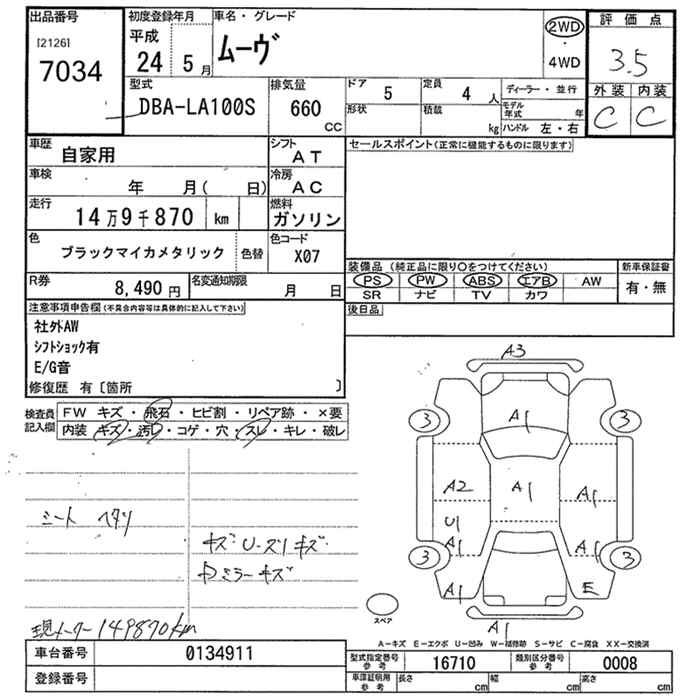 出品番号 初度登録年月 車名・グレード 評価点
[2126]
7034
平成
24 5月
ムーヴ
2WD
・
4WD
3.5
外装 内装
C C
型式
DBA-LA100S
排気量
660
CC
ドア 5 定員 4 人
形状 積載 kg
ディーラー・並行
モデル年式 年
ハンドル 左・右
車歴
自家用
シフト
AT
セールスポイント(正常に機能するものに限ります)
車検 年 月( 日)
冷房
AC
走行
14万9千870 km
燃料
ガソリン
色
ブラックマイカメタリック
色替
色コード
X07
装備品 (純正品に限り○をつけてください) 新車保証書
PS PW ABS エアB AW 有・無
SR ナビ TV カワ
R券
8,490円
名変通知期限
月 日
後日品
注意事項申告欄(不具合内容等は具体的に記入して下さい)
社外AW
シフトショック有
E/G音
修復歴 有〔箇所 〕
検査員
記入欄
FW キズ・飛石・ヒビ割・リペア跡・×要
内装 キズ・汚レ・コゲ・穴・スレ・キレ・破レ
シート ヘタリ
キズ U-スリキズ
ミラーキズ
現メーター 149870km
A3
3 A1 3
A2 A1 A1
U1
A1 A1
3 3
A1 E
A1
スペア
A-キズ E-エクボ U-凹み W-補修跡 S-サビ C-腐食 XX-交換済
車台番号 0134911
登録番号
型式指定番号
参考
16710
類別区分番号
参考
0008
車庫証明用
参考
長さ cm 幅 cm 高さ cm